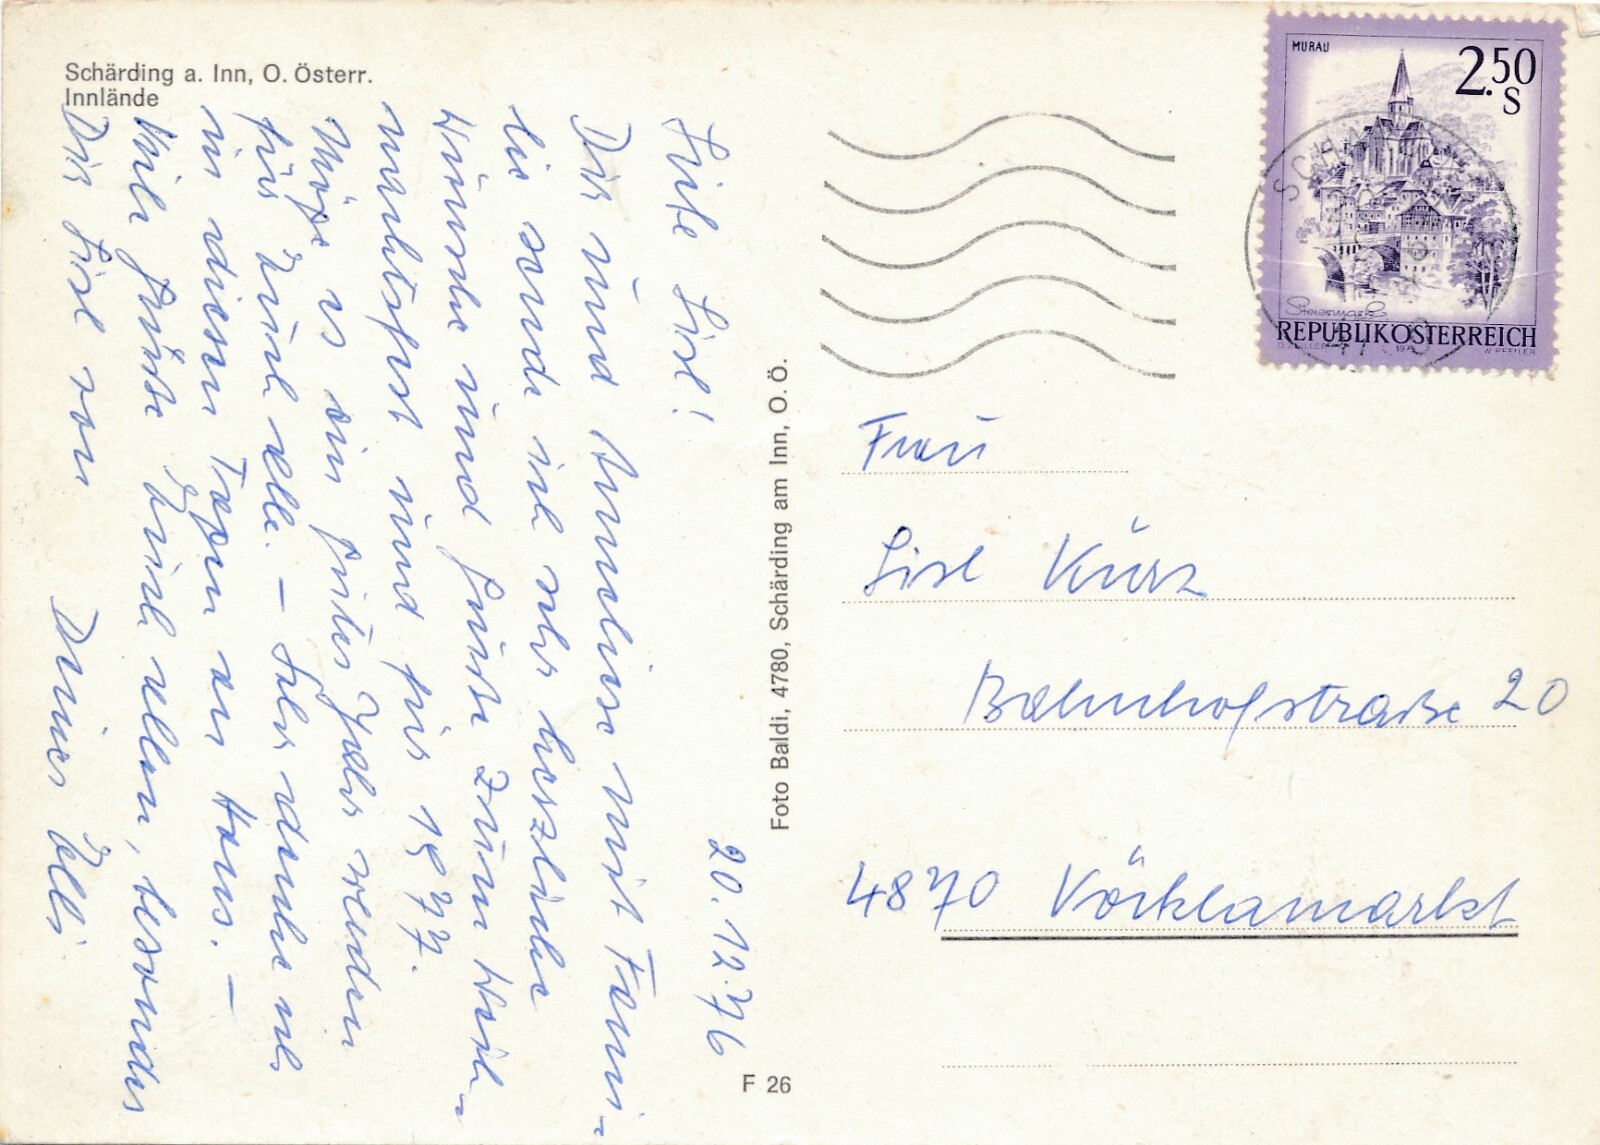 Schärding a. Inn, O. Österr.
Innlände
20.12.76
Liebe Lisl!
Dir und Anneliese mit Fami-
lie sende ich sehr herzliche
Wünsche und Grüße zum Weih-
nachtsfest und für 1977.
Möge es ein gutes Jahr werden
für Euch alle. – Sehr denke ich
in diesen Tagen an Hans. –
Viele Grüße Euch allen, besonders
Dir Lisl von Deiner Elli
Foto Baldi, 4780, Schärding am Inn, O. Ö.
F 26
MURAU
2.50
S
Steiermark
REPUBLIK ÖSTERREICH
Frau
Lisl Kürz
Bahnhofstraße 20
4870 Vöcklamarkt